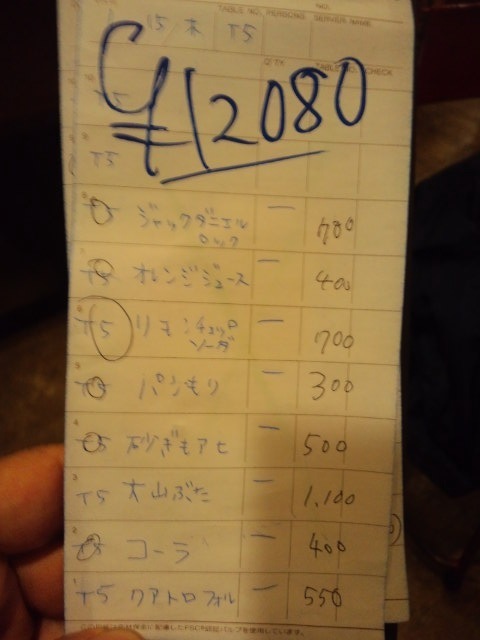 TABLE NO. PERSONS SERVER NAME
15/木 T5
Q'TY TABLE NO. CHECK
¥12080
T5
T5 ジャックダニエル 一 700
ロック
T5 オレンジジュース 一 400
T5 リモンチェッロ 一 700
ソーダ
T5 パンもり 一 300
T5 砂ぎもアヒ 一 500
T5 大山ぶた 一 1,100
T5 コーラ 一 400
T5 クアトロフォル 一 550